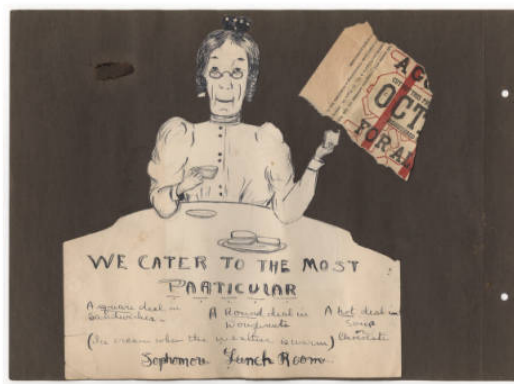 AG
OCT
FOR AL
WE CATER TO THE MOST
PARTICULAR
A square deal in Sandwiches
A Round deal in Doughnuts
A hot deal in Soup or Chocolate
(Ice cream when the weather is warm)
Sophomore Lunch Room